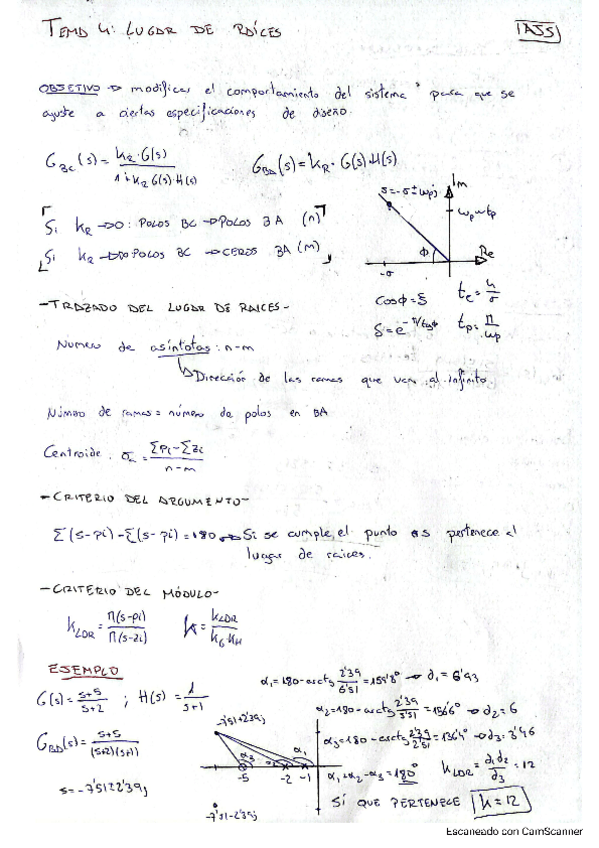 TEMA 4: LUGAR DE RAÍCES
IASS
OBJETIVO → modificar el comportamiento del sistema para que se
ajuste a ciertas especificaciones de diseño.
G_BC(s) = k_R·G(s) / 1+k_R G(s)·H(s)
G_BA(s) = k_R·G(s)H(s)
Si k_R → 0: POLOS BC → POLOS BA (n)
Si k_R → ∞ POLOS BC → CEROS BA (m)
s=-σ±ωpj
Im
ωp
Re
-σ
ϕ
- TRAZADO DEL LUGAR DE RAICES -
cosϕ = ξ
te = π/σ
δ = e^-π/tgϕ
tp = π/ωp
Numero de asíntotas: n-m
↳ Dirección de las ramas que van al infinito
Número de ramas = número de polos en BA
Centroide. σ = Σpi - Σzi / n-m
- CRITERIO DEL ARGUMENTO -
Σ(s-pi) - Σ(s-pi) = 180 → Si se cumple, el punto s pertenece al
lugar de raices.
- CRITERIO DEL MÓDULO -
k_LDR = Π(s-pi) / Π(s-zi)
k = k_LDR / k_G k_H
EJEMPLO
G(s) = s+5 / s+2 ; H(s) = 1 / s+1
G_BA(s) = s+5 / (s+2)(s+1)
s = -7'51±2'39j
-7'51+2'39j
α3
α2
α1
-5
-2
-1
-7'51-2'39j
α1 = 180 - arctg 2'39/6'51 = 159'8° → d1 = 6'93
α2 = 180 - arctg 2'39/5'51 = 156'6° → d2 = 6
α3 = 180 - arctg 2'39/2'51 = 136'4° → d3 = 3'46
α1 + α2 - α3 = 180°
k_LDR = d1 d2 / d3 = 12
SÍ QUE PERTENECE
k = 12
Escaneado con CamScanner